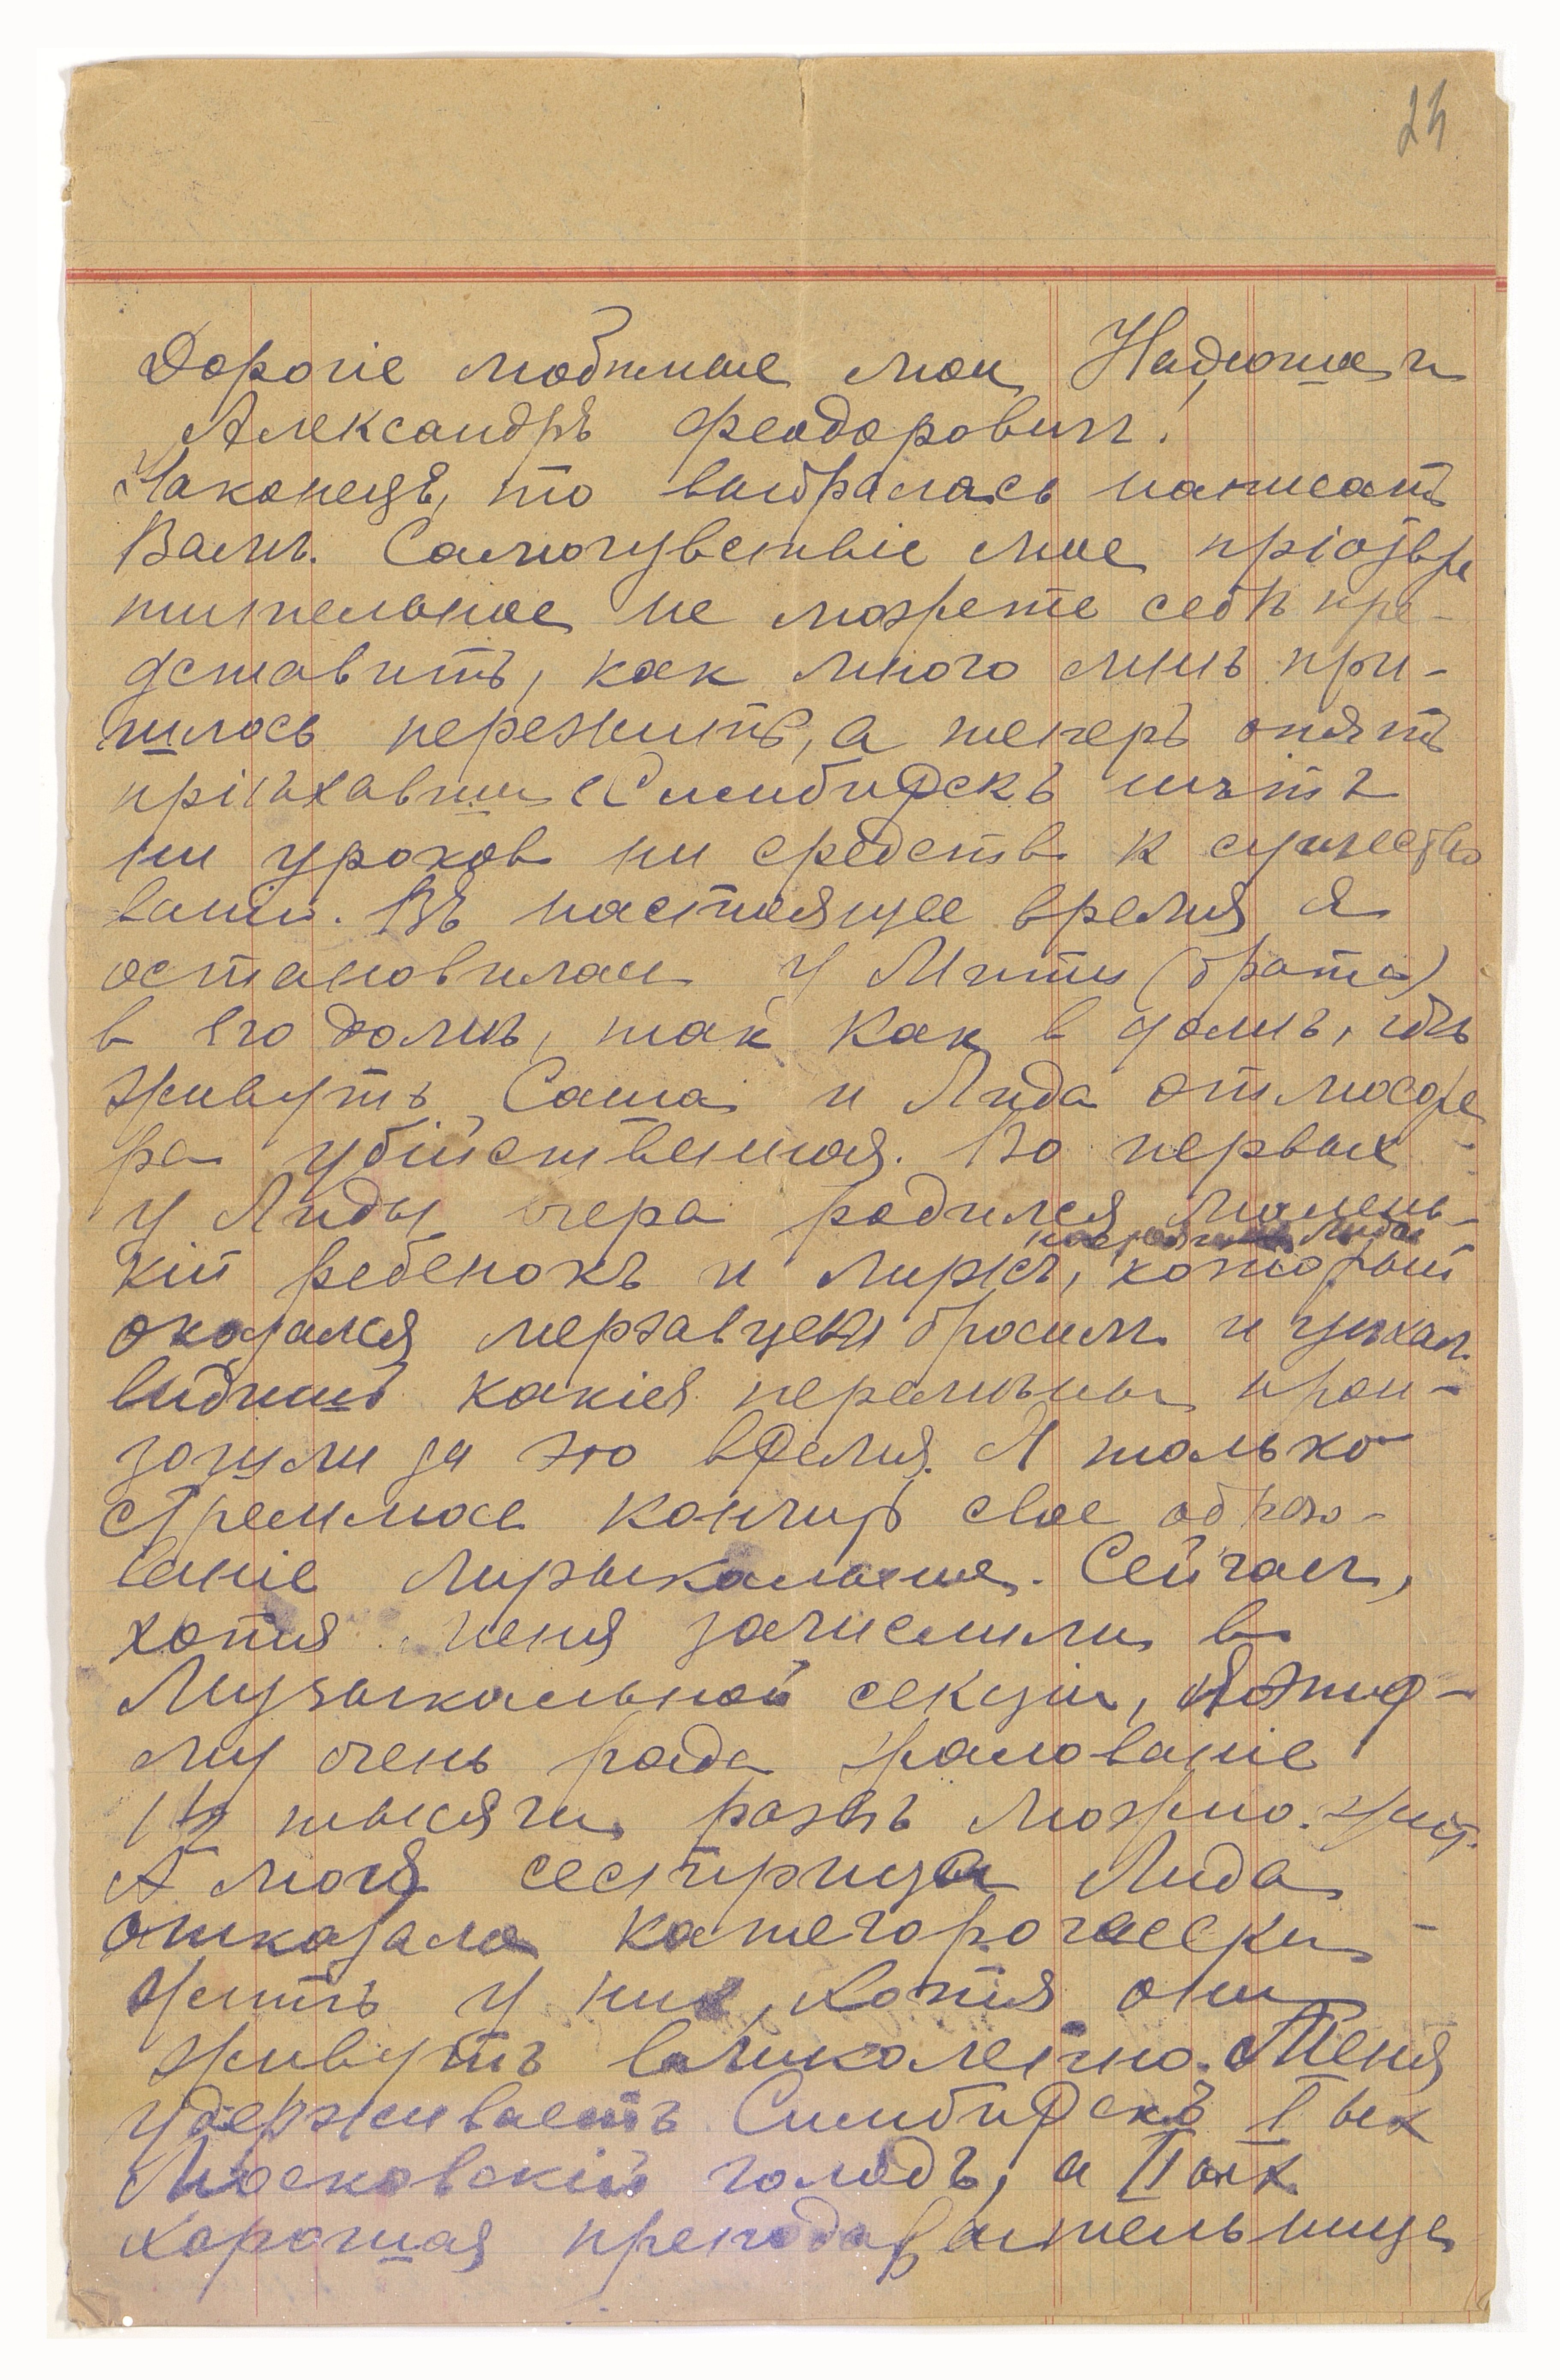 24
Дорогіе любимые мои Надюша и
Александръ Феодоровичъ!
Наконецъ, то выбралась написать
Вамъ. Самочувствіе мое пріотвра
тительное не можете себѣ пре-
дставить, как много мнѣ при-
шлось пережить, а теперь опять
пріѣхавши Симбирскъ нѣтъ
ни уроков ни средств к существо
ванію. Въ настоящее время я
остановилась у Мити (брата)
в его домѣ, так как в домѣ, гдѣ
живутъ Саша и Лида отмосфе
ра убійственная. Во первых
у Лиды вчера родился малень-
кій ребенокъ и мужъ, который
оказался мерзавцем бросил и уѣхал
видишь какія перемѣны прои-
зошли за это время. Я только
стремлюсь кончить свое образо-
ваніе музыкальное. Сейчас,
хотя меня зачислили в
Музыкальной секціи, я этиф-
му очень рада жалованіе
1½ тысячи разъ можно жить.
А моя сестрица Лида
отказала категорочаески
жить у них, хотя они
живутъ вликолепно. Меня
удерживаетъ Симбирскъ I ых
Московскій голодъ, а II ых
хорошая преподавательница